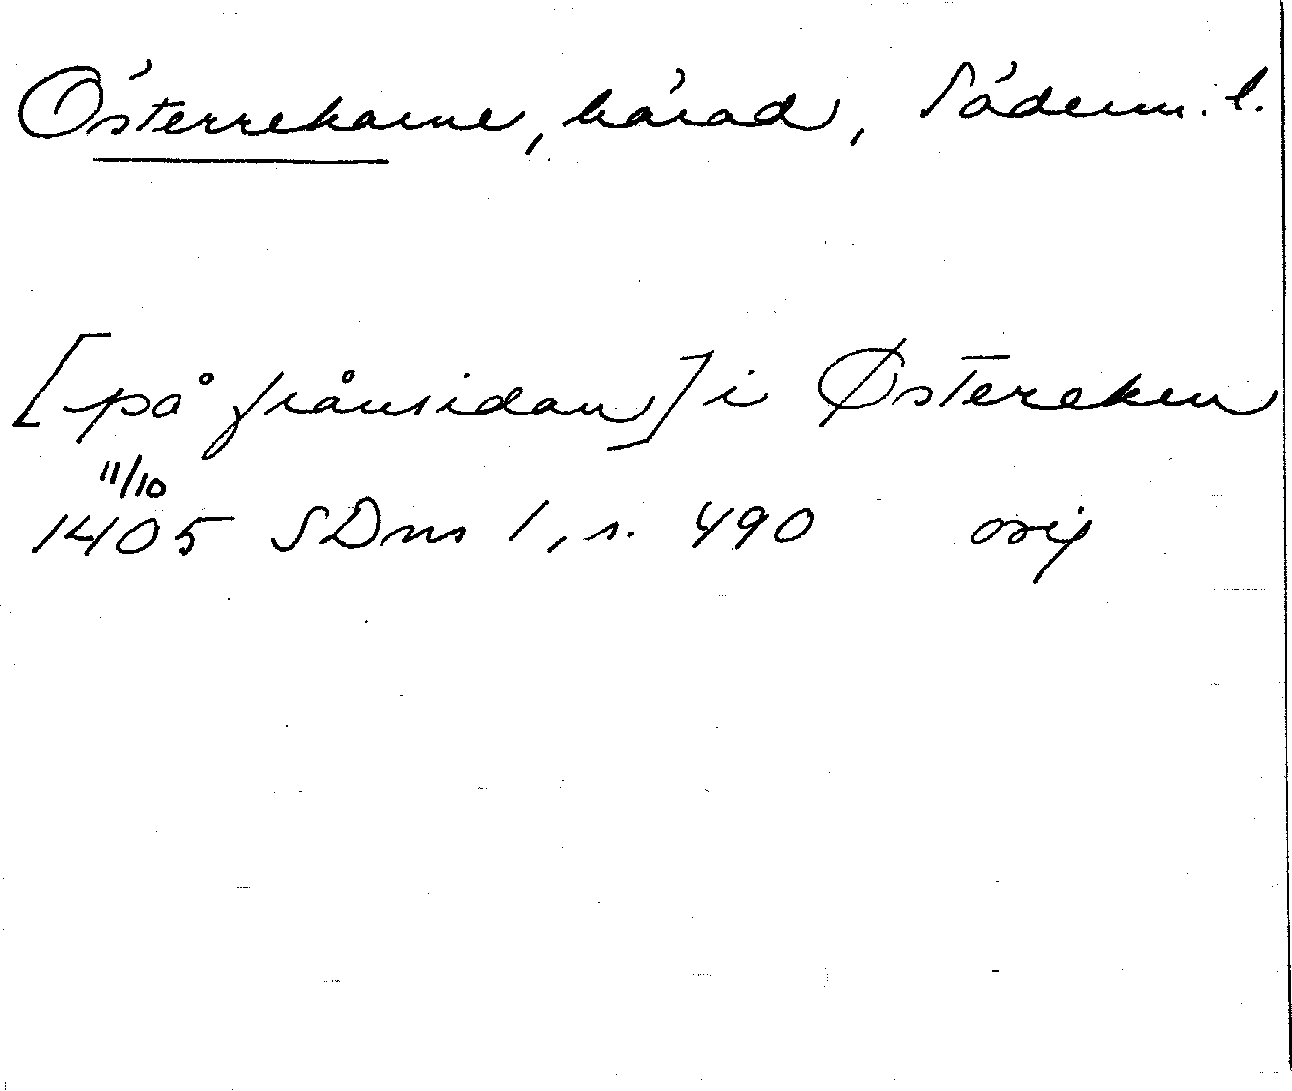 Österrekarne, härad, Söderm. l.
[på frånsidan] i Østereken
11/10
1405 SDns 1, s. 490 orig